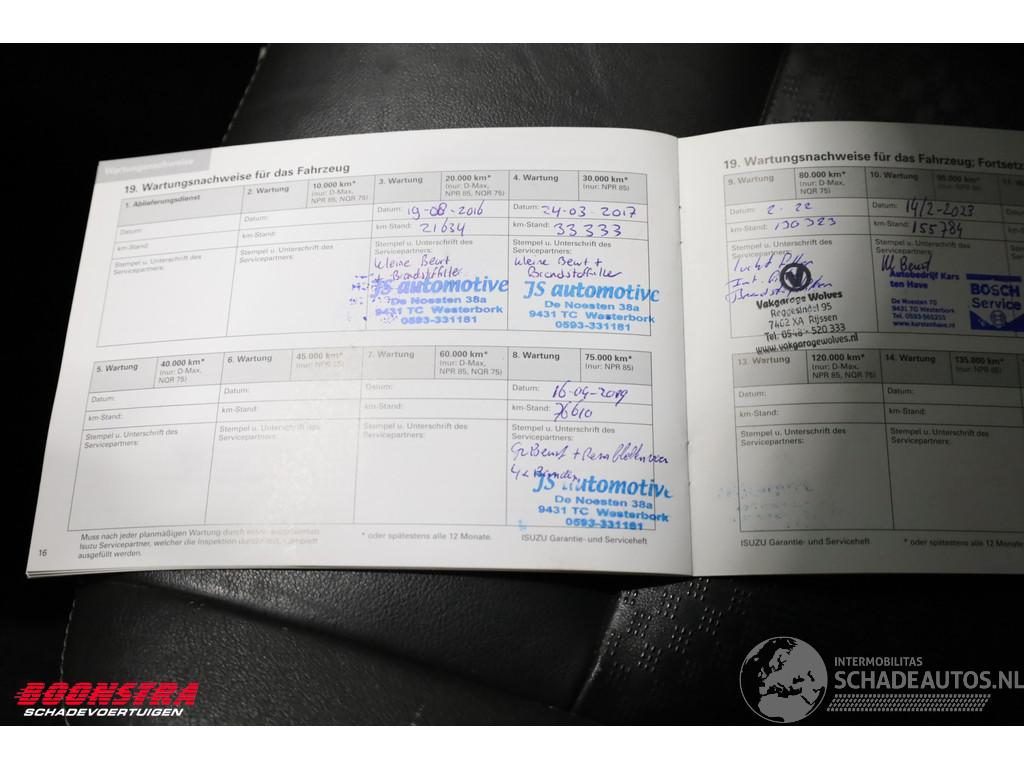 Wartungsnachweise
19. Wartungsnachweise für das Fahrzeug
1. Ablieferungsdienst
Datum:
km-Stand:
Stempel u. Unterschrift des
Servicepartners:
2. Wartung
10.000 km*
(nur: D-Max,
NPR 85, NQR 75)
Datum:
km-Stand:
Stempel u. Unterschrift des
Servicepartners:
3. Wartung
20.000 km*
(nur: D-Max,
NPR 85, NQR 75)
Datum: 19-08-2016
km-Stand: 21634
Stempel u. Unterschrift des
Servicepartners:
kleine Beurt
+ Brandstoffilter
JS automotive
De Noesten 38a
9431 TC Westerbork
0593-331181
4. Wartung
30.000 km*
(nur: NPR 85)
Datum: 24-03-2017
km-Stand: 33333
Stempel u. Unterschrift des
Servicepartners:
kleine Beurt +
Brandstoffilter
JS automotive
De Noesten 38a
9431 TC Westerbork
0593-331181
5. Wartung
40.000 km*
(nur: D-Max,
NPR 85,
NQR 75)
Datum:
km-Stand:
Stempel u. Unterschrift des
Servicepartners:
6. Wartung
45.000 km*
(nur: NPR 85)
Datum:
km-Stand:
Stempel u. Unterschrift des
Servicepartners:
7. Wartung
60.000 km*
(nur: D-Max,
NPR 85, NQR 75)
Datum:
km-Stand:
Stempel u. Unterschrift des
Servicepartners:
8. Wartung
75.000 km*
(nur: NPR 85)
Datum: 16-04-2019
km-Stand: 76610
Stempel u. Unterschrift des
Servicepartners:
Gr Beurt + Remblokken voor
4x Banden
JS automotive
De Noesten 38a
9431 TC Westerbork
0593-331181
Muss nach jeder planmäßigen Wartung durch einen autorisierten
Isuzu Servicepartner, welcher die Inspektion durchführt, komplett
ausgefüllt werden.
* oder spätestens alle 12 Monate.
ISUZU Garantie- und Serviceheft
16
19. Wartungsnachweise für das Fahrzeug; Fortsetz
9. Wartung
80.000 km*
(nur: D-Max,
NQR 75)
Datum: 2-22
km-Stand: 130323
Stempel u. Unterschrift des
Servicepartners:
Vakgarage Wolves
Reggesingel 95
7462 XA Rijssen
Tel. 0548 - 520 333
www.vakgaragewolves.nl
10. Wartung
90.000 km*
(nur: NPR 85)
Datum: 14/2-2023
km-Stand: 155784
Stempel u. Unterschrift des
Servicepartners:
Kl Beurt
Autobedrijf Kars
ten Have
De Noesten 70
9431 TC Westerbork
Tel. 0593-565255
www.karstenhave.nl
BOSCH
Service
11. W
13. Wartung
120.000 km*
(nur: D-Max,
NPR 85, NQR 75)
Datum:
km-Stand:
Stempel u. Unterschrift des
Servicepartners:
14. Wartung
135.000 km*
(nur: NPR 85)
Datum:
km-Stand:
Stempel u. Unterschrift des
Servicepartners:
ISUZU Garantie- und Serviceheft
* oder spätestens alle 12 Mona
BOONSTRA
SCHADEVOERTUIGEN
INTERMOBILITAS
SCHADEAUTOS.NL